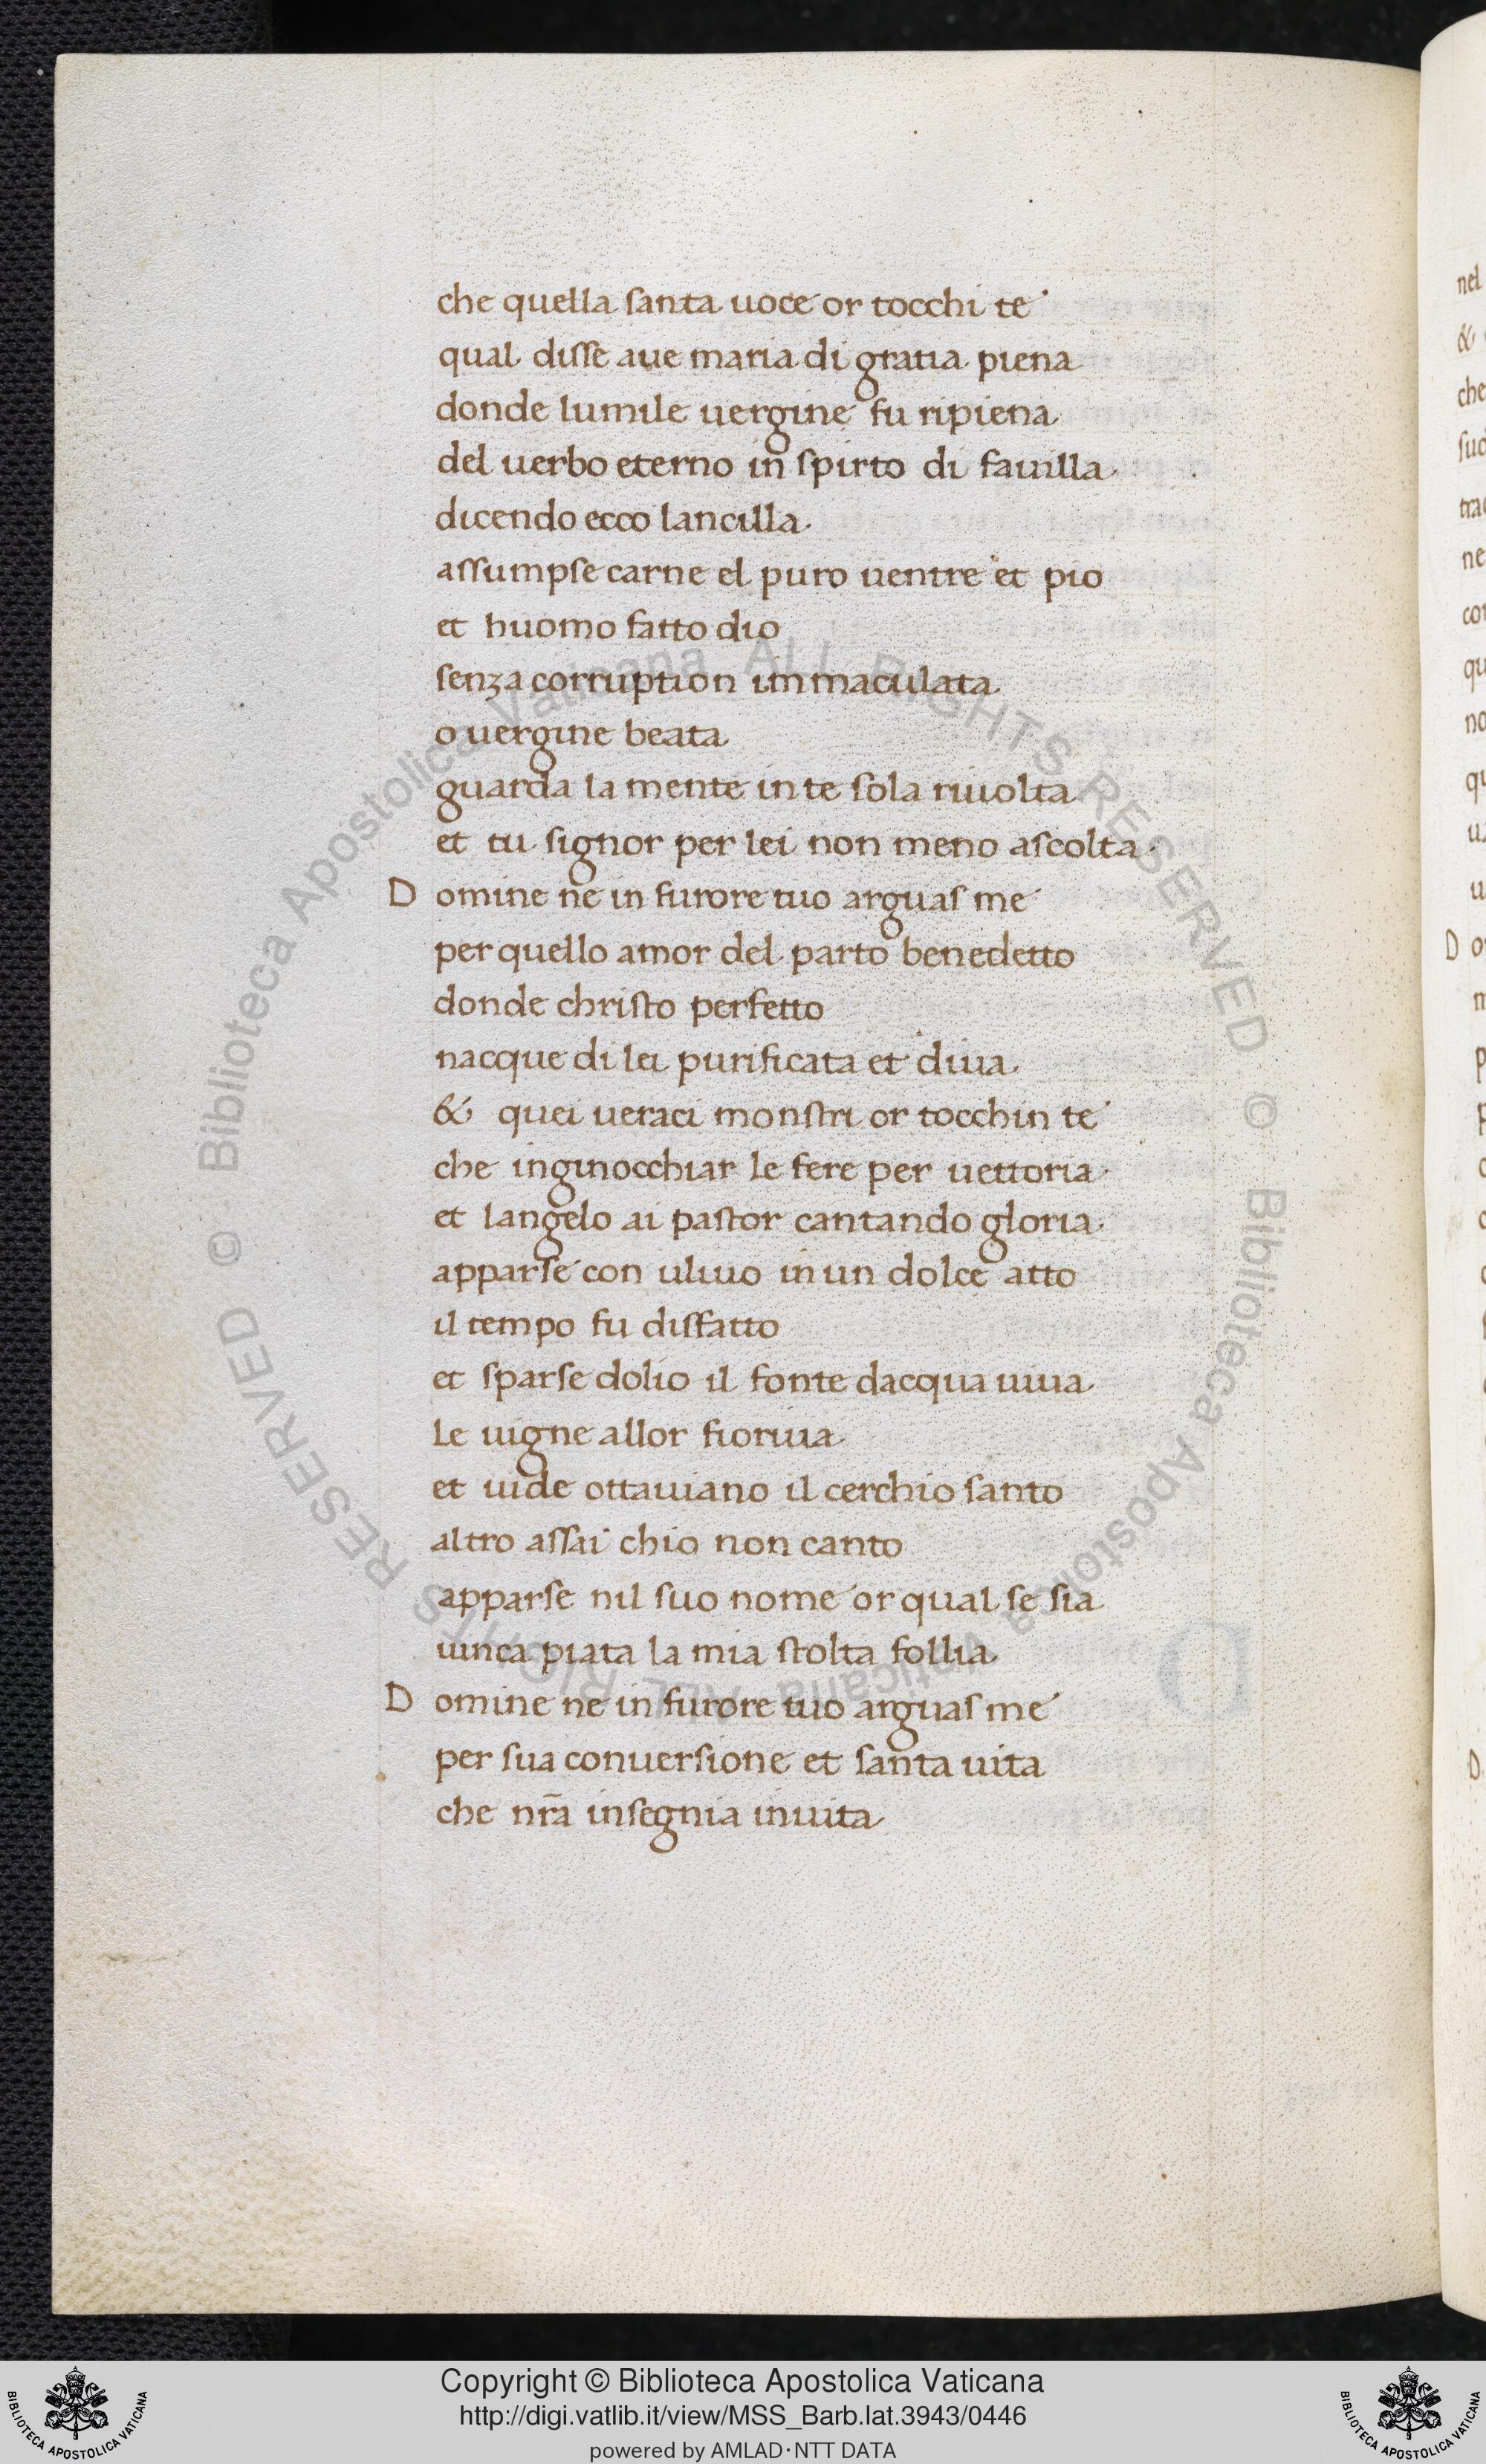 che quella santa uoce or tocchi te
qual disse aue maria di gratia piena
donde lumile uergine fu ripiena
del uerbo eterno in spirto di fauilla
dicendo ecco lancilla
assumpse carne el puro uentre et pio
et huomo fatto dio
senza corruption immaculata
o uergine beata
guarda la mente in te sola riuolta
et tu signor per lei non meno ascolta
D omine ne in furore tuo arguas me
per quello amor del parto benedetto
donde christo perfetto
nacque di lei purificata et diua
& quei ueraci monstri or tocchin te
che inginocchiar le fere per uettoria
et langelo ai pastor cantando gloria
apparse con uliuo in un dolce atto
il tempo fu disfatto
et sparse dolio il fonte dacqua uiua
Le uigne allor fioriua
et uide ottauiano il cerchio santo
altro assai chio non canto
apparse nil suo nome or qual se sia
uinca piata la mia stolta follia
D omine ne in furore tuo arguas me
per sua conuersione et santa uita
che nr̃a insegnia inuita
nel
&
che
D
D
© Biblioteca Apostolica Vaticana ALL RIGHTS RESERVED © Biblioteca Apostolica Vaticana ALL RIGHTS RESERVED
Copyright © Biblioteca Apostolica Vaticana
http://digi.vatlib.it/view/MSS_Barb.lat.3943/0446
powered by AMLAD·NTT DATA
BIBLIOTECA APOSTOLICA VATICANA
BIBLIOTECA APOSTOLICA VATICANA